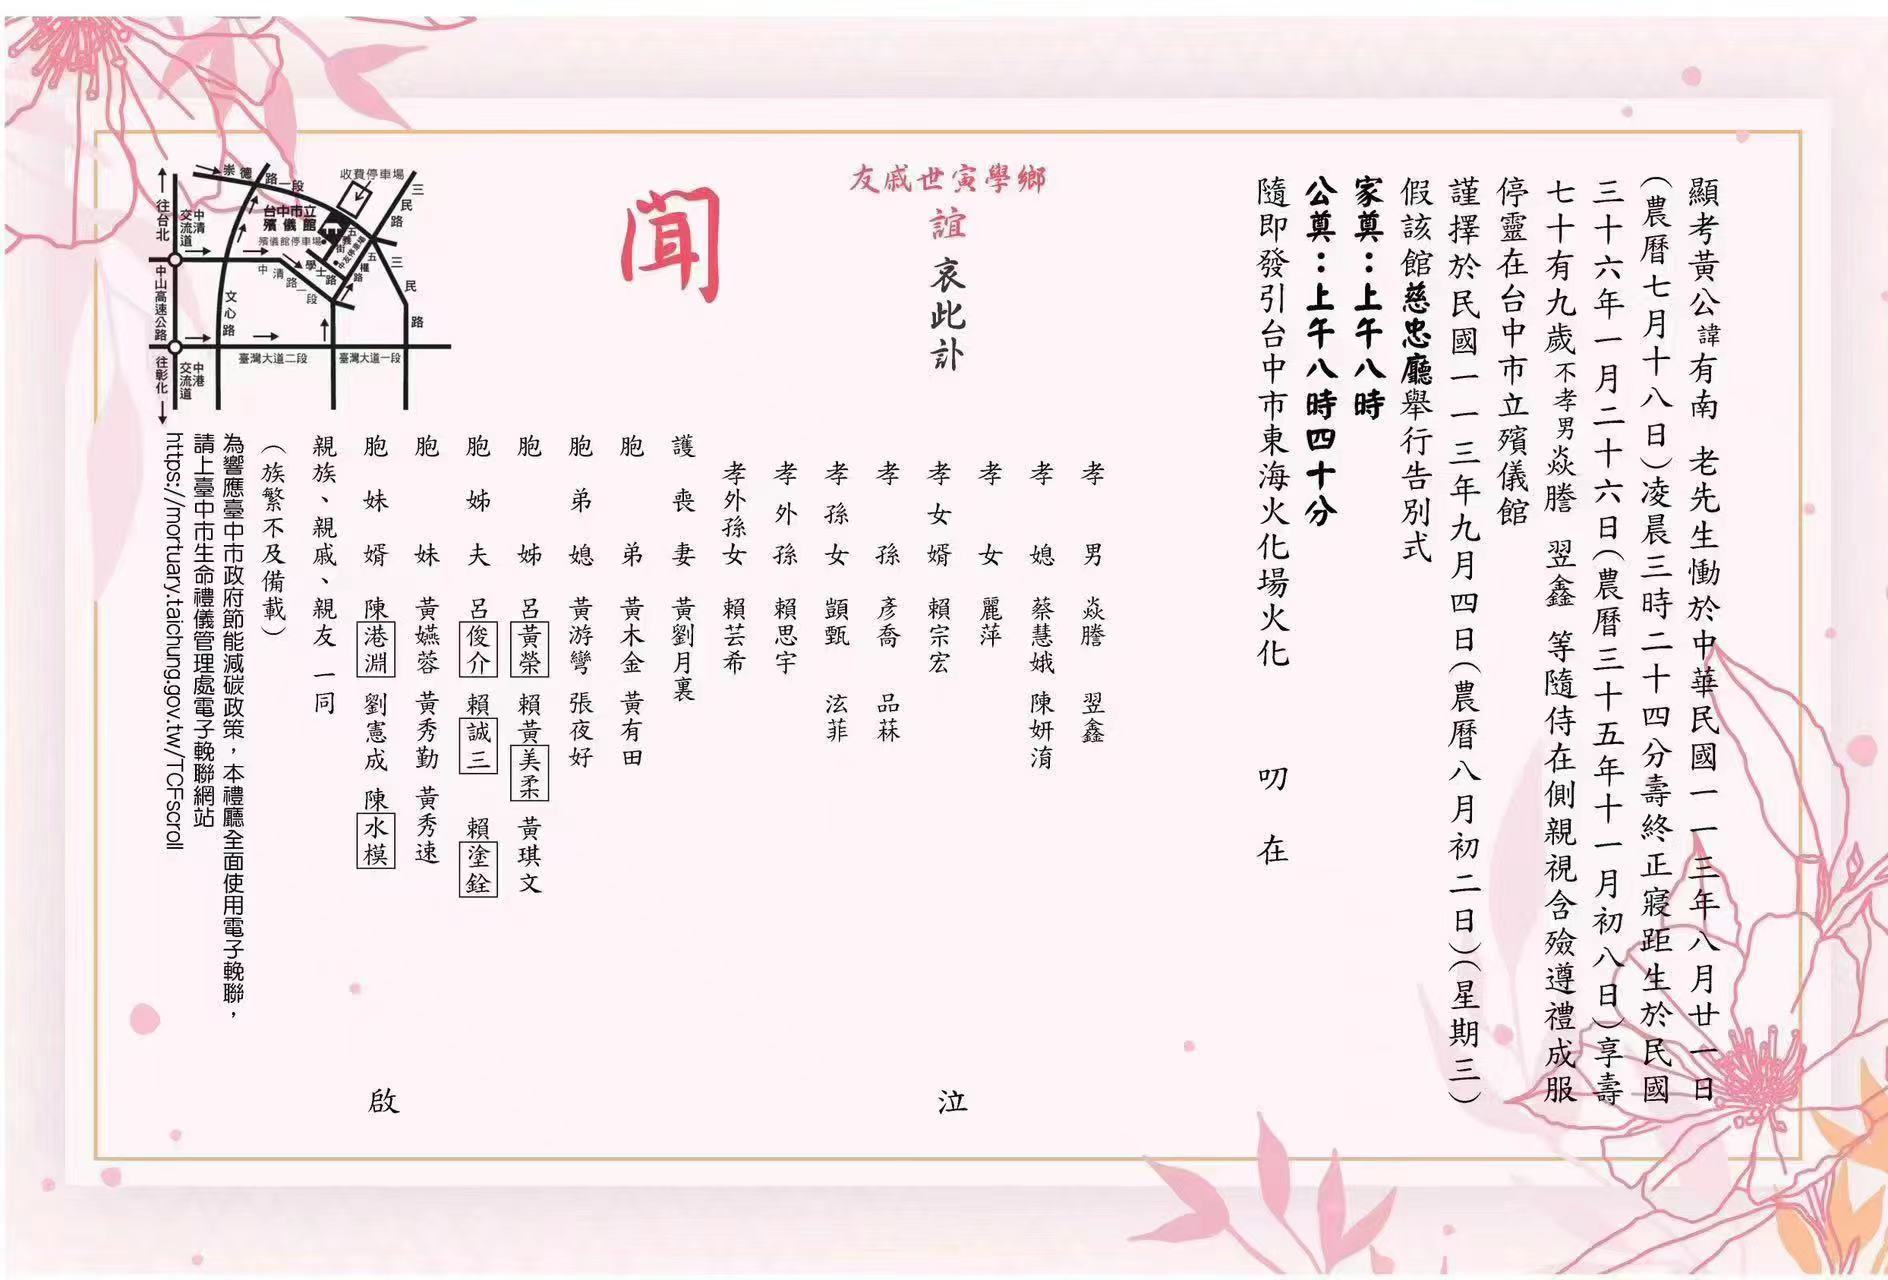 顯考黃公諱有南 老先生慟於中華民國一一三年八月廿一日
(農曆七月十八日)凌晨三時二十四分壽終正寢距生於民國
三十六年一月二十六日(農曆三十五年十一月初八日)享壽
七十有九歲不孝男焱謄 翌鑫 等隨侍在側親視含殮遵禮成服
停靈在台中市立殯儀館
謹擇於民國一一三年九月四日(農曆八月初二日)(星期三)
假該館慈忠廳舉行告別式
家奠:上午八時
公奠:上午八時四十分
隨即發引台中市東海火化場火化 叨 在
友戚世寅學鄉
誼 哀此訃
聞
孝男 焱謄 翌鑫
孝媳 蔡慧娥 陳妍淯
孝女 麗萍
孝女婿 賴宗宏
孝孫 彥喬 品菻
孝孫女 顗甄 泫菲
孝外孫 賴思宇
孝外孫女 賴芸希
護喪妻 黃劉月裏
胞弟 黃木金 黃有田
胞弟媳 黃游彎 張夜好
胞姊 呂黃榮 賴黃美柔 黃琪文
胞姊夫 呂俊介 賴誠三 賴塗銓
胞妹 黃嬿蓉 黃秀勤 黃秀速
胞妹婿 陳港淵 劉憲成 陳水模
親族、親戚、親友 一同
(族繁不及備載)
泣
啟
為響應臺中市政府節能減碳政策,本禮廳全面使用電子輓聯,
請上臺中市生命禮儀管理處電子輓聯網站
https://mortuary.taichung.gov.tw/TCFscroll
崇德路一段
收費停車場
三民路
台中市立
殯儀館
殯儀館停車場
五義街
中友停車場
五權路
學士路
三民路
中清路一段
文心路
往台北
中清
交流道
中山高速公路
往彰化
中港
交流道
臺灣大道二段
臺灣大道一段